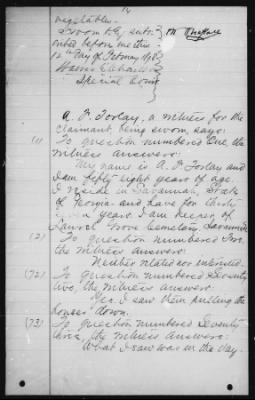 14
vegetables.
Sworn to & subs-
cribed before me this
day of February 187
Special Com
A. F. Torlay, a witness for the
claimant, being sworn, says:
(1) To question numbered One, the
witness answers:
My name is A. F. Torlay and
I am fifty eight years of age.
I reside in Savannah, State
of Georgia and have for thirty
seven years. I am keeper of
Laurel Grove Cemetery, Savannah
(2) To question numbered Two,
the witness answers:
Neither related nor interested.
(72) To question numbered Seventy
two, the witness answers:
Yes, I saw them pulling the
houses down.
(73) To question numbered Seventy
three, the witness answers:
What I saw was in the day.